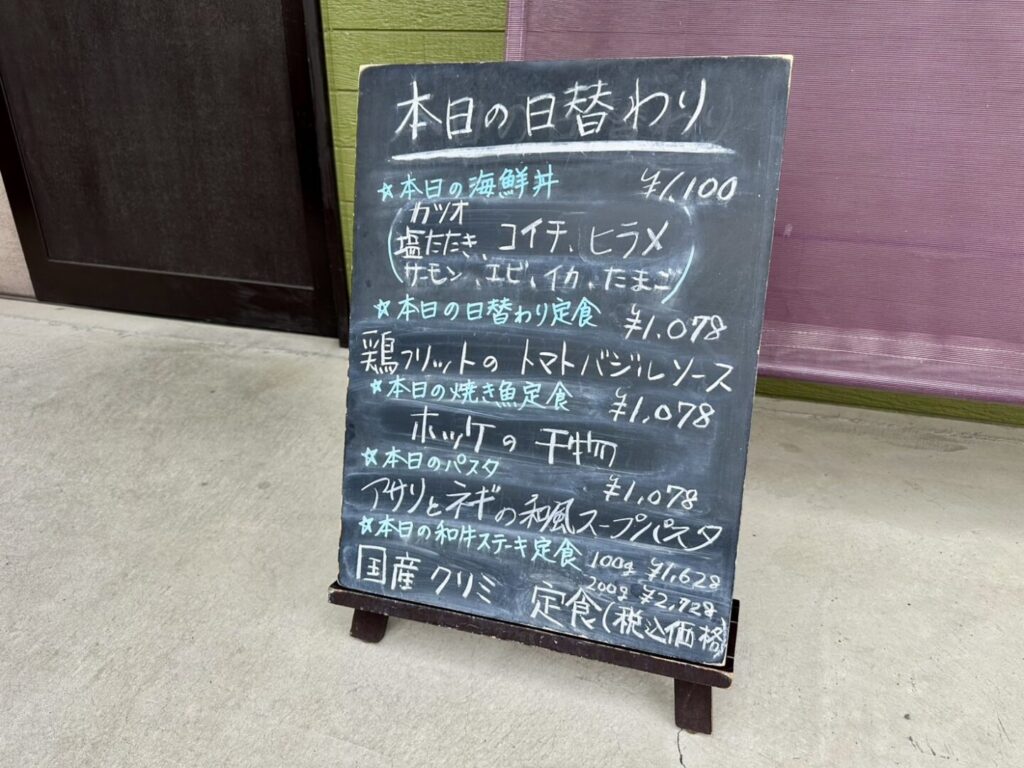 本日の日替わり
☆本日の海鮮丼 ¥1,100
カツオ
(塩たたき、コイチ、ヒラメ
サーモン、エビ、イカ、たまご)
☆本日の日替わり定食 ¥1.078
鶏フリットの トマトバジルソース
☆本日の焼き魚定食 ¥1,078
ホッケの 干物
☆本日のパスタ ¥1,078
アサリとネギの和風スープパスタ
☆本日の和牛ステーキ定食 100g ¥1,628
200g ¥2,728
国産クリミ 定食(税込価格)